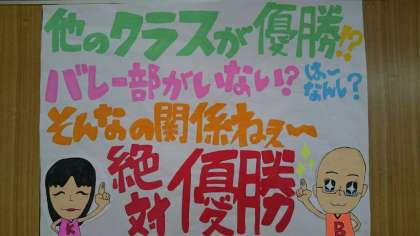 他のクラスが優勝!?
バレー部がいない?
はーなんし?
そんなの関係ねぇ〜
絶対優勝
K
B